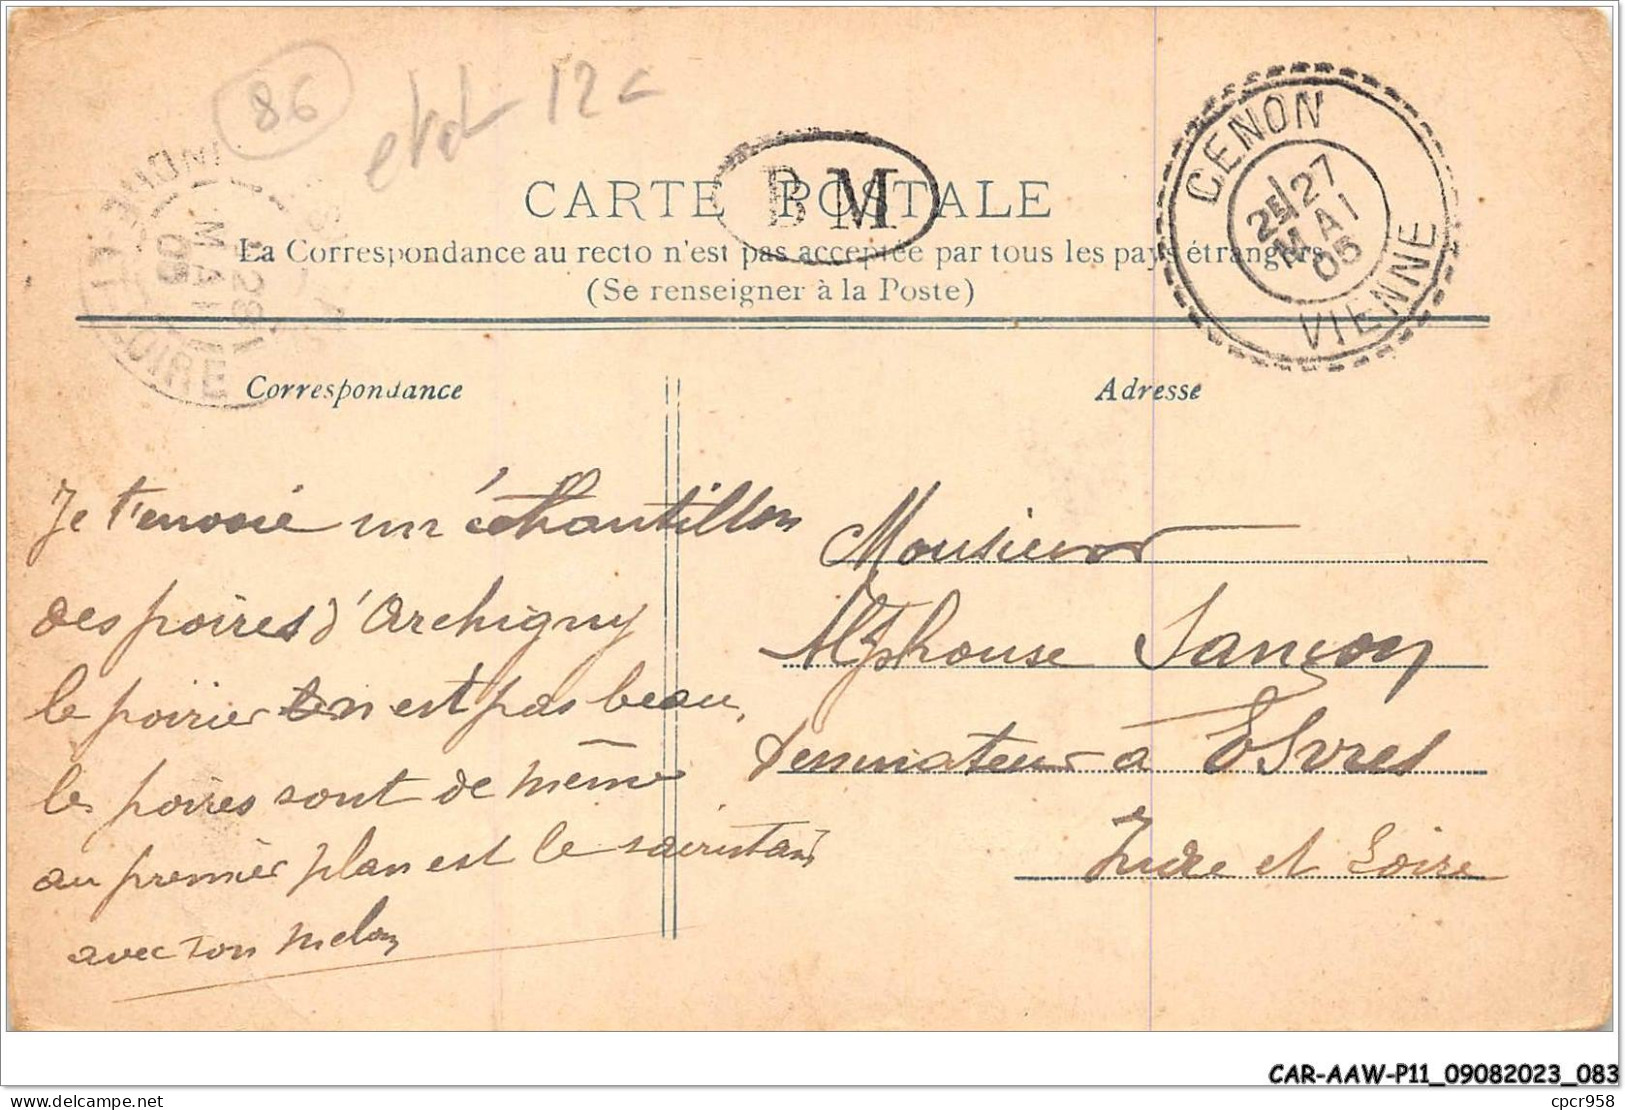 86
12
CENON
VIENNE
2E/27
MAI
05
BM
INDRE-ET-LOIRE
29
MAI
05
CARTE POSTALE
La Correspondance au recto n'est pas acceptée par tous les pays étrangers
(Se renseigner à la Poste)
Correspondance
Adresse
Je t'envoie un échantillon
des poires d'Archigny
le poirier n'est pas beau,
les poires sont de même
au premier plan est le
avec son melon
Monsieur
Alphonse Sançon
à Esvres
Indre et Loire
CAR-AAW-P11_09082023_083
cpcr958